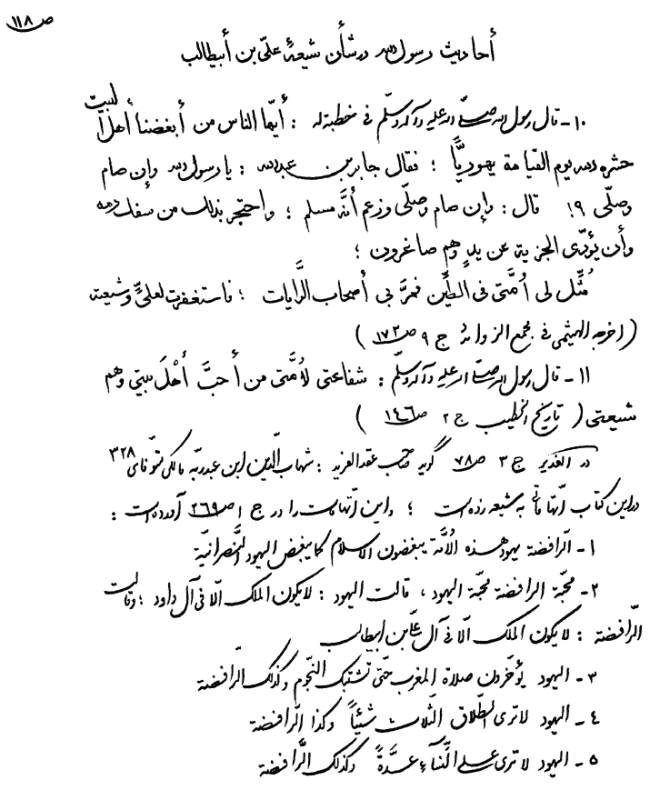 ص ١١٨
أحاديث رسول الله در شأن شيعهٔ علی بن أبیطالب
١٠ـ قال رسول الله صلّی الله علیه وآله وسلّم فی خطبة له : أیّها الناس من أبغضنا أهل البیت
حشره الله یوم القیامة یهودیّاً ؛ فقال جابر بن عبدالله : یا رسول الله وإن صام
وصلّی ؟! قال : وإن صام وصلّی وزعم أنّه مسلم ؛ واحتجر بذلک من سفک دمه
وأن یؤدّی الجزیة عن یدٍ وهم صاغرون ؛
مُثّل لی اُمّتی فی الطّین فمرّ بی أصحاب الرّایات ؛ فاستغفرت لعلیّ وشیعته
( اخرجه الهیثمی فی مجمع الزوائد ج ٩ ص ١٧٢ )
١١ـ قال رسول الله صلّی الله علیه وآله وسلّم : شفاعتی لاُمّتی من أحبّ أهل بیتی وهم
شیعتی ( تاریخ الخطیب ج ٢ ص ١٤٦ )
در الغدیر ج ٣ ص ٧٨ گوید صاحب عقد الفرید : شهاب الدّین ابن عبد ربّه مالکی متوفّای ٣٢٨
در این کتاب اتّهاماتی به شیعه زده است ؛ و این اتّهامات را در ج ١ ص ٢٦٩ آورده است :
١ـ الرّافضة یهود هذه الاُمّة یبغضون الاسلام کما یبغض الیهود النّصرانیّة
٢ـ محبّة الرافضة محبّة الیهود ، قالت الیهود : لا یکون الملک الّا فی آل داود ؛ وقالت
الرّافضة : لا یکون الملک الّا فی آل علیّ بن ابیطالب
٣ـ الیهود یؤخّرون صلاة المغرب حتّی تشتبک النّجوم وکذلک الرّافضة
٤ـ الیهود لا تری الطّلاق الثّلاث شیئاً وکذا الرّافضة
٥ـ الیهود لا تری علی النّساء عدّةً وکذلک الرّافضة